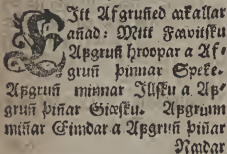 Eitt Afgruñed aakallar
añad: Mitt Fævitsku
Afgruñ hroopar a Af-
gruñ þinnar Speke.
Afgruñ minnar Illsku a Af-
gruñ þiñar Giæsku. Afgrunn
miñar Eimdar a Afgruñ þiñar
Naadar